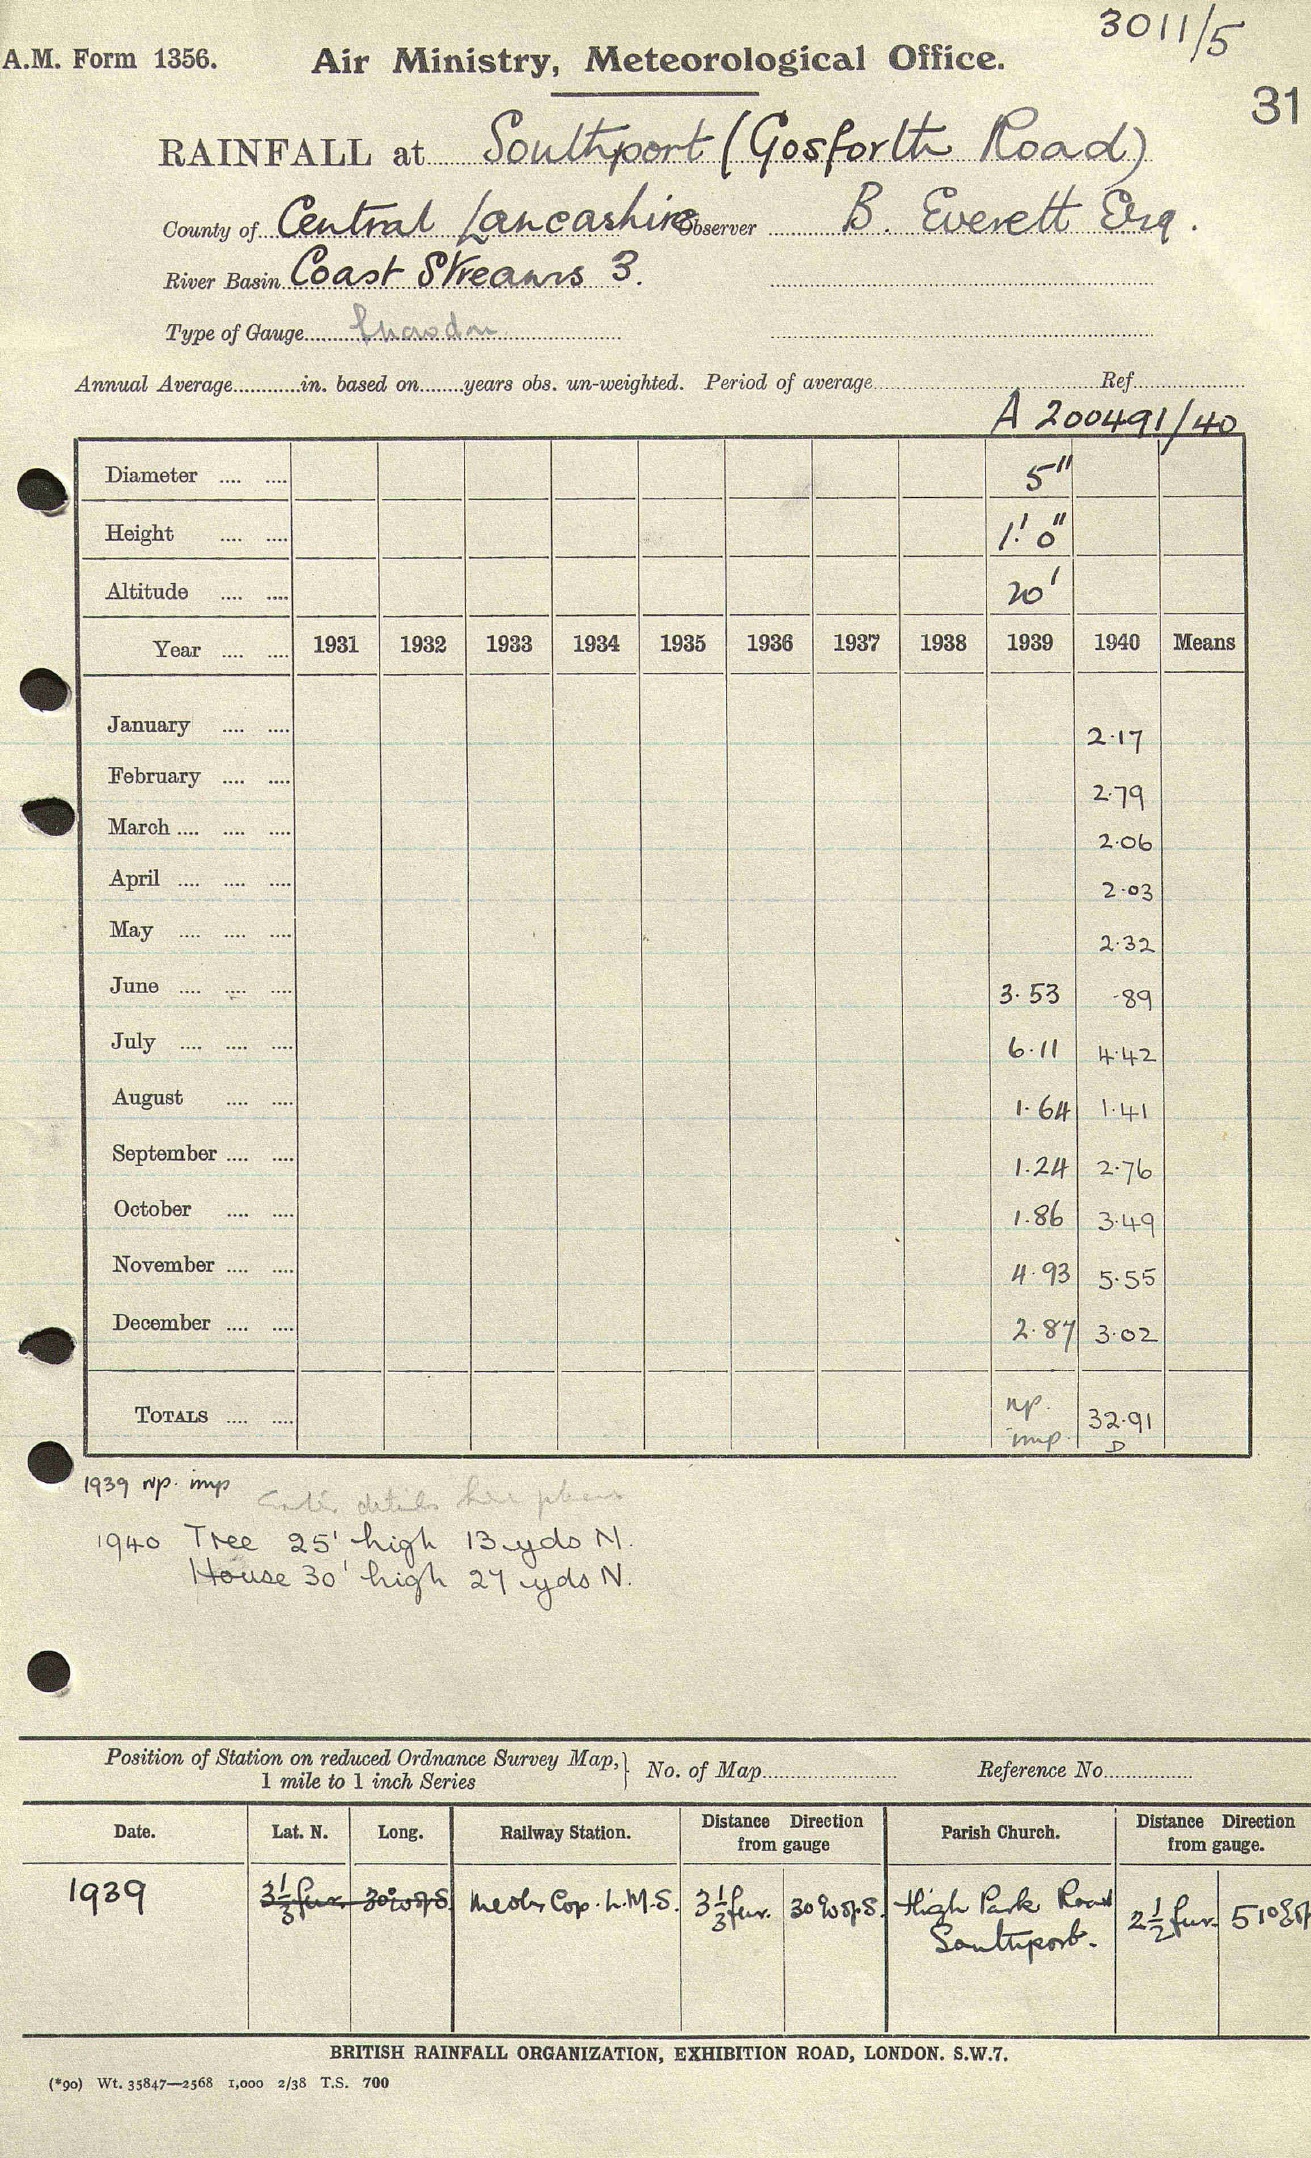 3011/5
A.M. Form 1356. Air Ministry, Meteorological Office.
31
RAINFALL at Southport (Gosforth Road)
County of Central Lancashire Observer B. Everett Esq.
River Basin Coast Streams 3.
Type of Gauge Snowdon
Annual Average in. based on years obs. un-weighted. Period of average Ref
A 200491/40
Diameter 5"
Height 1' 0"
Altitude 20'
Year 1931 1932 1933 1934 1935 1936 1937 1938 1939 1940 Means
January 2.17
February 2.79
March 2.06
April 2.03
May 2.32
June 3.53 .89
July 6.11 4.42
August 1.64 1.41
September 1.24 2.76
October 1.86 3.49
November 4.93 5.55
December 2.87 3.02
TOTALS np. imp. 32.91
D
1939 np. imp
details here please
1940 Tree 25' high 13 yds N.
House 30' high 27 yds N.
Position of Station on reduced Ordnance Survey Map, 1 mile to 1 inch Series } No. of Map Reference No
Date. Lat. N. Long. Railway Station. Distance Direction from gauge Parish Church. Distance Direction from gauge.
1939 3 1/3 fur. 30° W of S. Meols Cop. L.M.S. 3 1/3 fur. 30° W of S. High Park Road Southport. 2 1/2 fur. 51° E of
BRITISH RAINFALL ORGANIZATION, EXHIBITION ROAD, LONDON. S.W.7.
(*90) Wt. 35847—2568 1,000 2/38 T.S. 700